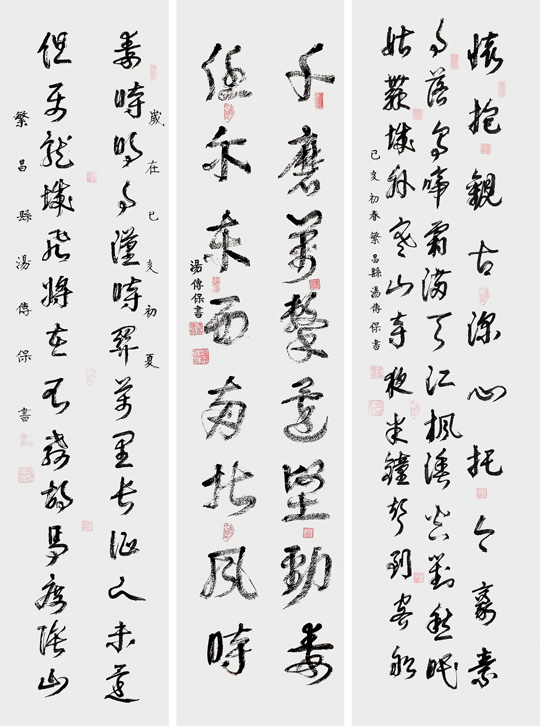 懷抱觀古深心托今豪素
月落烏啼霜滿天江楓漁火對愁眠
姑蘇城外寒山寺夜半鐘聲到客船
己亥初春繁昌縣湯傳保書
千磨萬擊還堅勁秦
任尔東西南北風時
湯傳保書
歲在己亥初夏
秦時明月漢時關萬里長征人未還
但使龍城飛將在不教胡馬度陰山
繁昌縣湯傳保書